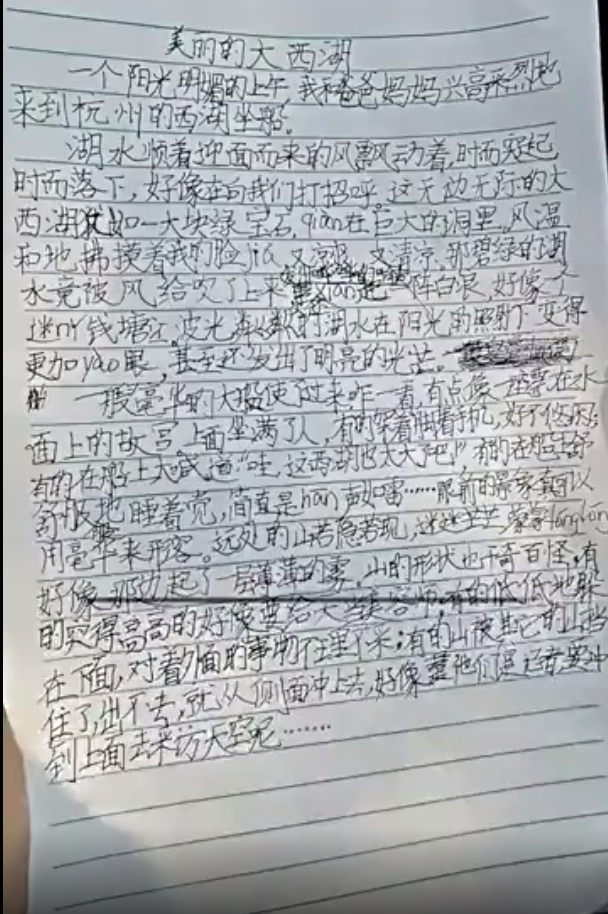 美丽的大西湖
一个阳光明媚的上午,我和爸爸妈妈兴高采烈地
来到杭州的西湖坐船。
湖水顺着迎面而来的风飘动着,时而突起
时而落下,好像在向我们打招呼。这无边无际的大
西湖犹如一大块绿宝石,qian在巨大的洞里。风温
和地拂摸着我的脸jia,又凉爽,又清凉,那碧绿的湖
水竟被风给吹了上来,一阵白浪,好像一个
迷ni钱塘江。波光粼粼的湖水在阳光的照射下变得
更加yao眼,甚至还发出了明亮的光芒。
一艘豪华的大船使了过来,咋一看,有点像一座票在水
面上的故宫。上面坐满了人,有的架着脚看手机,好不悠闲;
有的在船上大喊道“哇,这西湖也太大了吧!”有的在船里舒
地睡着觉,简直是han声如雷……眼前的景象真可以
用毫华来形容。远处的山若隐若现,迷迷茫茫,
好像那边起了一层薄薄的雾,山的形状也千奇百怪,有
的突得高高的好像要给天当 有的低低地躲
在下面,对着外面的事物不理不采;有的山被其它的山挡
住了,出不去,就从侧面冲上去,好像
到上面去采访天空呢……